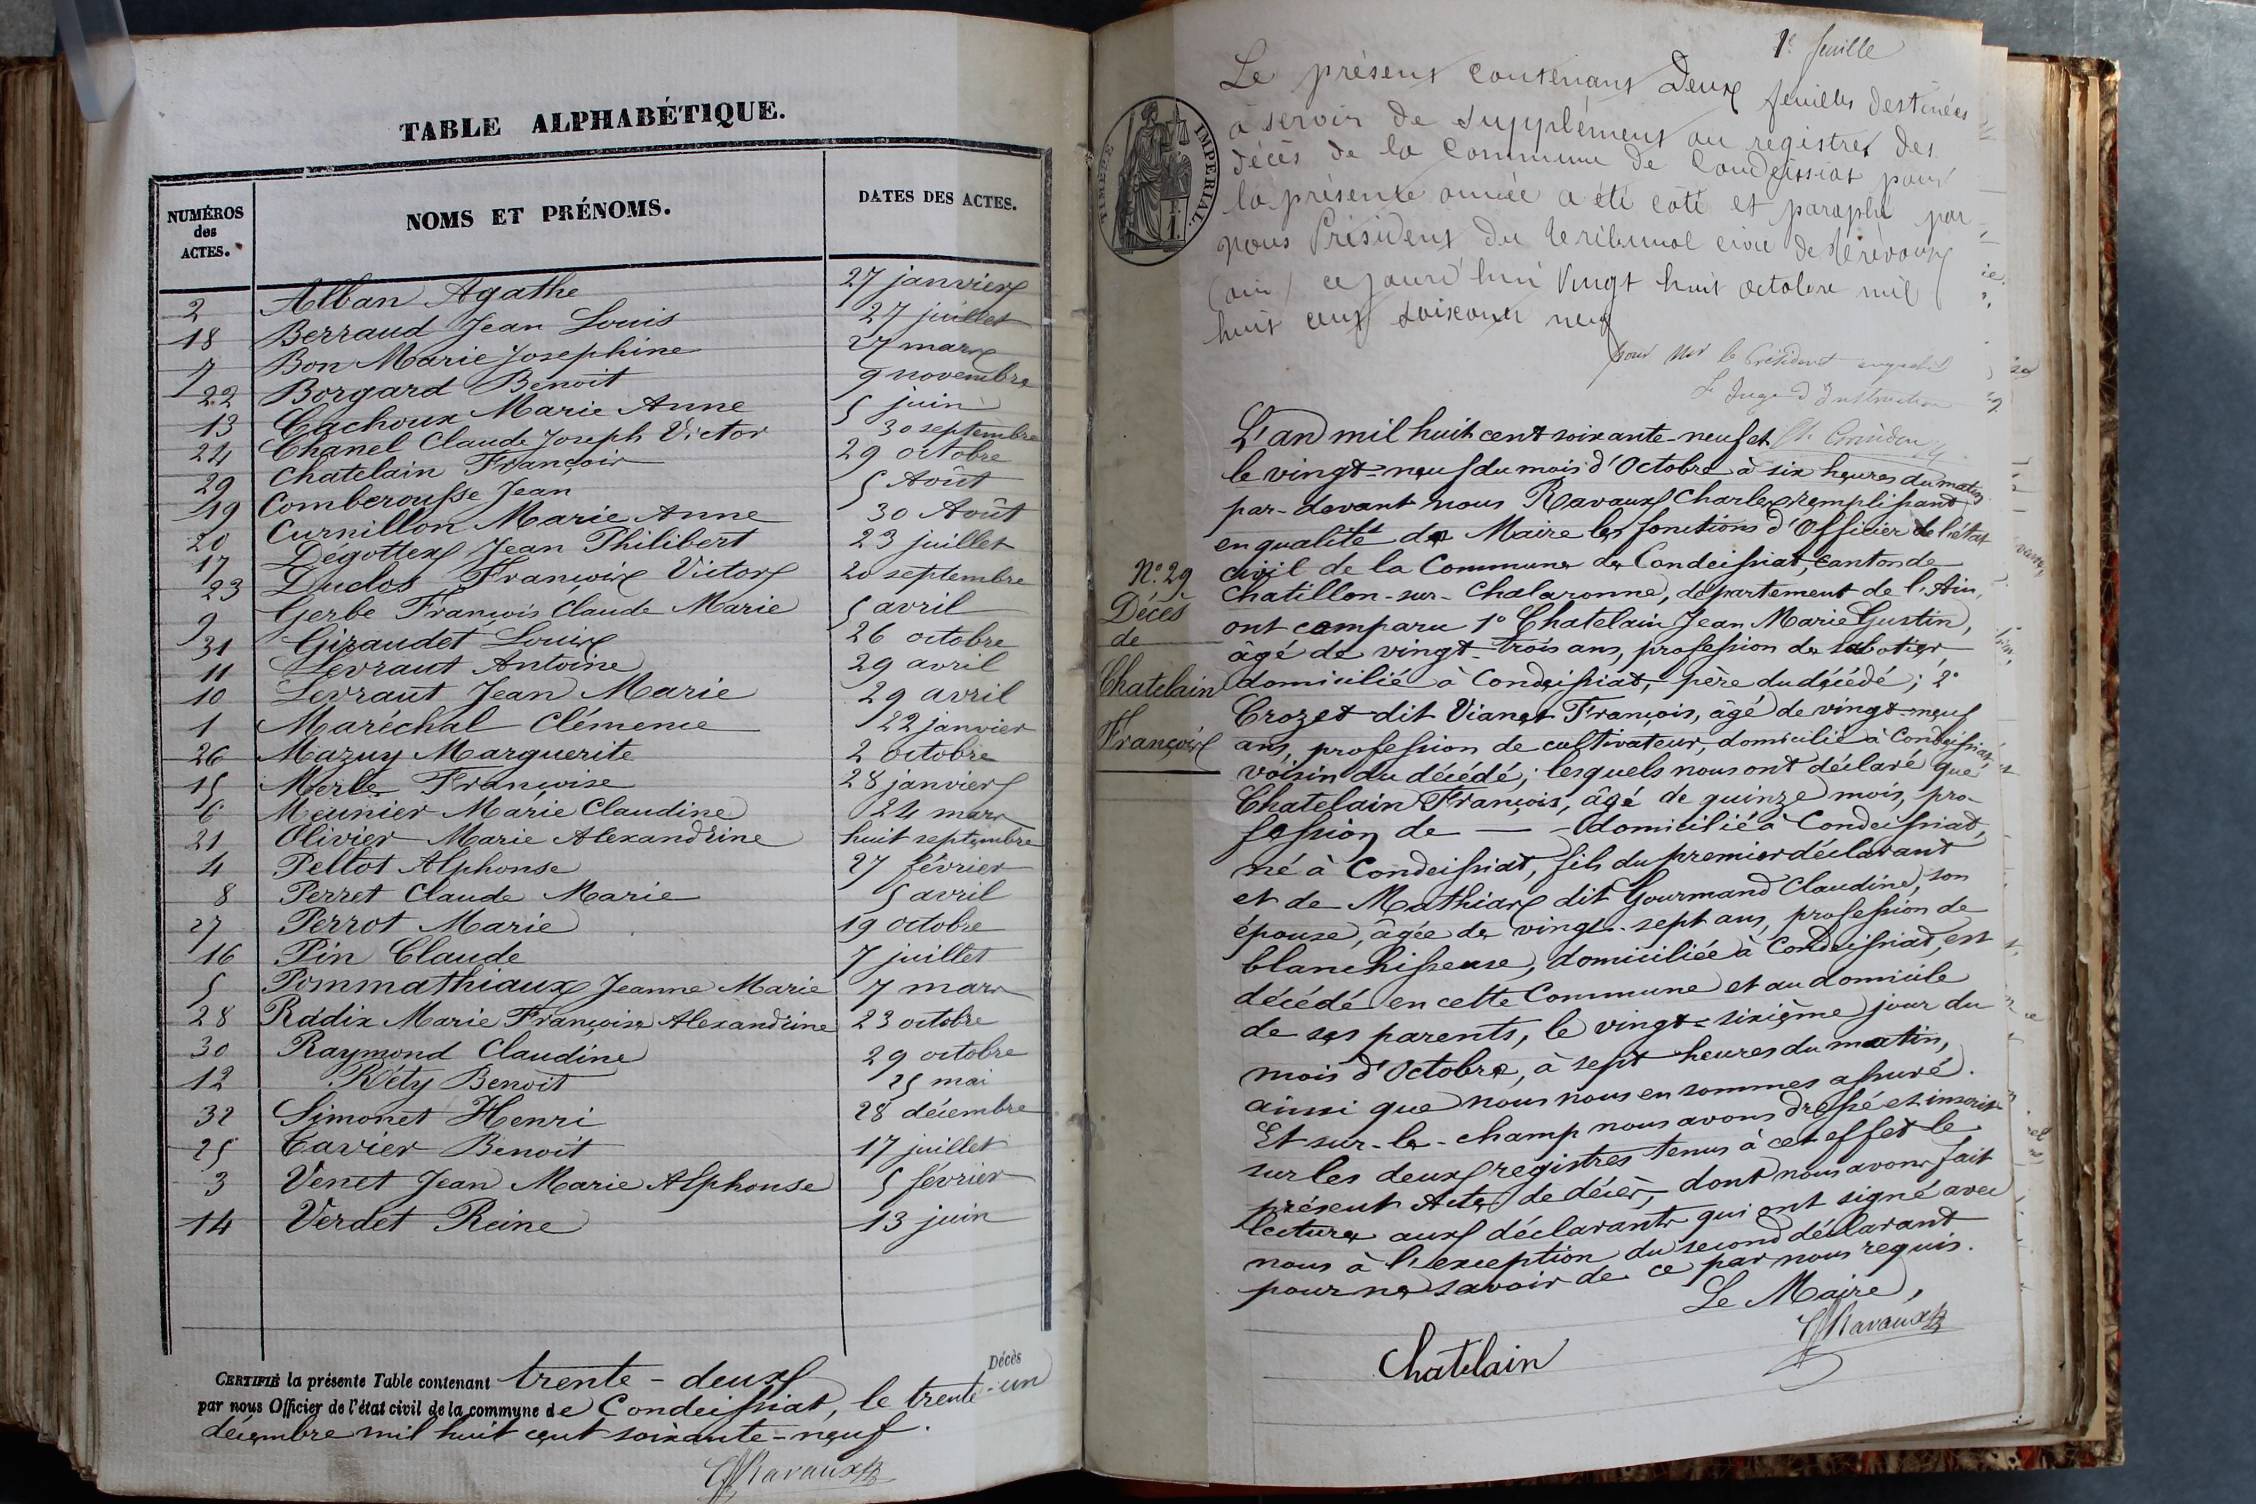 TABLE ALPHABÉTIQUE.
NUMÉROS des ACTES. NOMS ET PRÉNOMS. DATES DES ACTES.
2 Alban Agathe 27 janvier
18 Berraud Jean Louis 27 juillet
7 Bon Marie Josephine 27 mars
22 Borgard Benoit 9 novembre
13 Cachoux Marie Anne 5 juin
24 Chanel Claude Joseph Victor 30 septembre
29 Chatelain François 29 octobre
19 Comberousse Jean 5 Août
20 Curnillon Marie Anne 30 Août
17 Dégottex Jean Philibert 23 juillet
23 Duclos François Victor 20 septembre
9 Gerbe François Claude Marie 5 avril
31 Giraudet Louis 26 octobre
11 Levraut Antoine 29 avril
10 Levraut Jean Marie 29 avril
1 Maréchal Clémence 22 janvier
26 Mazuy Marguerite 2 octobre
15 Merle Françoise 28 janvier
6 Meunier Marie Claudine 24 mars
21 Olivier Marie Alexandrine huit septembre
4 Pellot Alphonse 27 février
8 Perret Claude Marie 5 avril
27 Perrot Marie 19 octobre
16 Pin Claude 7 juillet
5 Pommathiaux Jeanne Marie 7 mars
28 Radix Marie Françoise Alexandrine 23 octobre
30 Raymond Claudine 29 octobre
12 Réty Benoit 25 mai
32 Simonet Henri 28 décembre
25 Tavier Benoit 17 juillet
3 Venet Jean Marie Alphonse 5 février
14 Verdet Reine 13 juin
CERTIFIÉ la présente Table contenant trente-deux Décès
par nous Officier de l'état civil de la commune de Condeissiat, le trente-un
décembre mil huit cent soixante-neuf.
Ravaux
1e feuille
Le présent contenant Deux feuilles destinées
à servir de supplément au registre des
décès de la Commune de Condeissiat pour
la présente année a été coté et paraphé par
nous Président du tribunal civil de Trévoux
(ain) ce jourd'hui Vingt huit octobre mil
huit cent soixante neuf
pour Mr le Président empêché
Le Juge d'Instruction
TIMBRE IMPÉRIAL.
L'an mil huit cent soixante-neuf et
le vingt-neuf du mois d'Octobre à six heures du matin
par-devant nous Ravaux Charles remplissant
en qualité de Maire les fonctions d'Officier de l'état
civil de la Commune de Condeissiat, canton de
Chatillon-sur-Chalaronne, département de l'Ain,
No. 29
Décès
de
Chatelain
François
ont comparu 1o Chatelain Jean Marie Gustin,
âgé de vingt-trois ans, profession de sabotier,
domicilié à Condeissiat, père du décédé; 2o
Crozet dit Vianet François, âgé de vingt-neuf
ans, profession de cultivateur, domicilié à Condeissiat,
voisin du décédé; lesquels nous ont déclaré que
Chatelain François, âgé de quinze mois, pro-
fession de — domicilié à Condeissiat,
né à Condeissiat, fils du premier déclarant
et de Mathiax dit Gourmand Claudine, son
épouse, âgée de vingt-sept ans, profession de
blanchisseuse, domiciliée à Condeissiat, est
décédé en cette Commune et au domicile
de ses parents, le vingt-sixième jour du
mois d'Octobre, à sept heures du matin,
ainsi que nous nous en sommes assuré.
Et sur-le-champ nous avons dressé et inscrit
sur les deux registres tenus à cet effet le
présent Acte de décès, dont nous avons fait
lecture aux déclarants qui ont signé avec
nous à l'exception du second déclarant
pour ne savoir de ce par nous requis.
Le Maire,
Ravaux
Chatelain